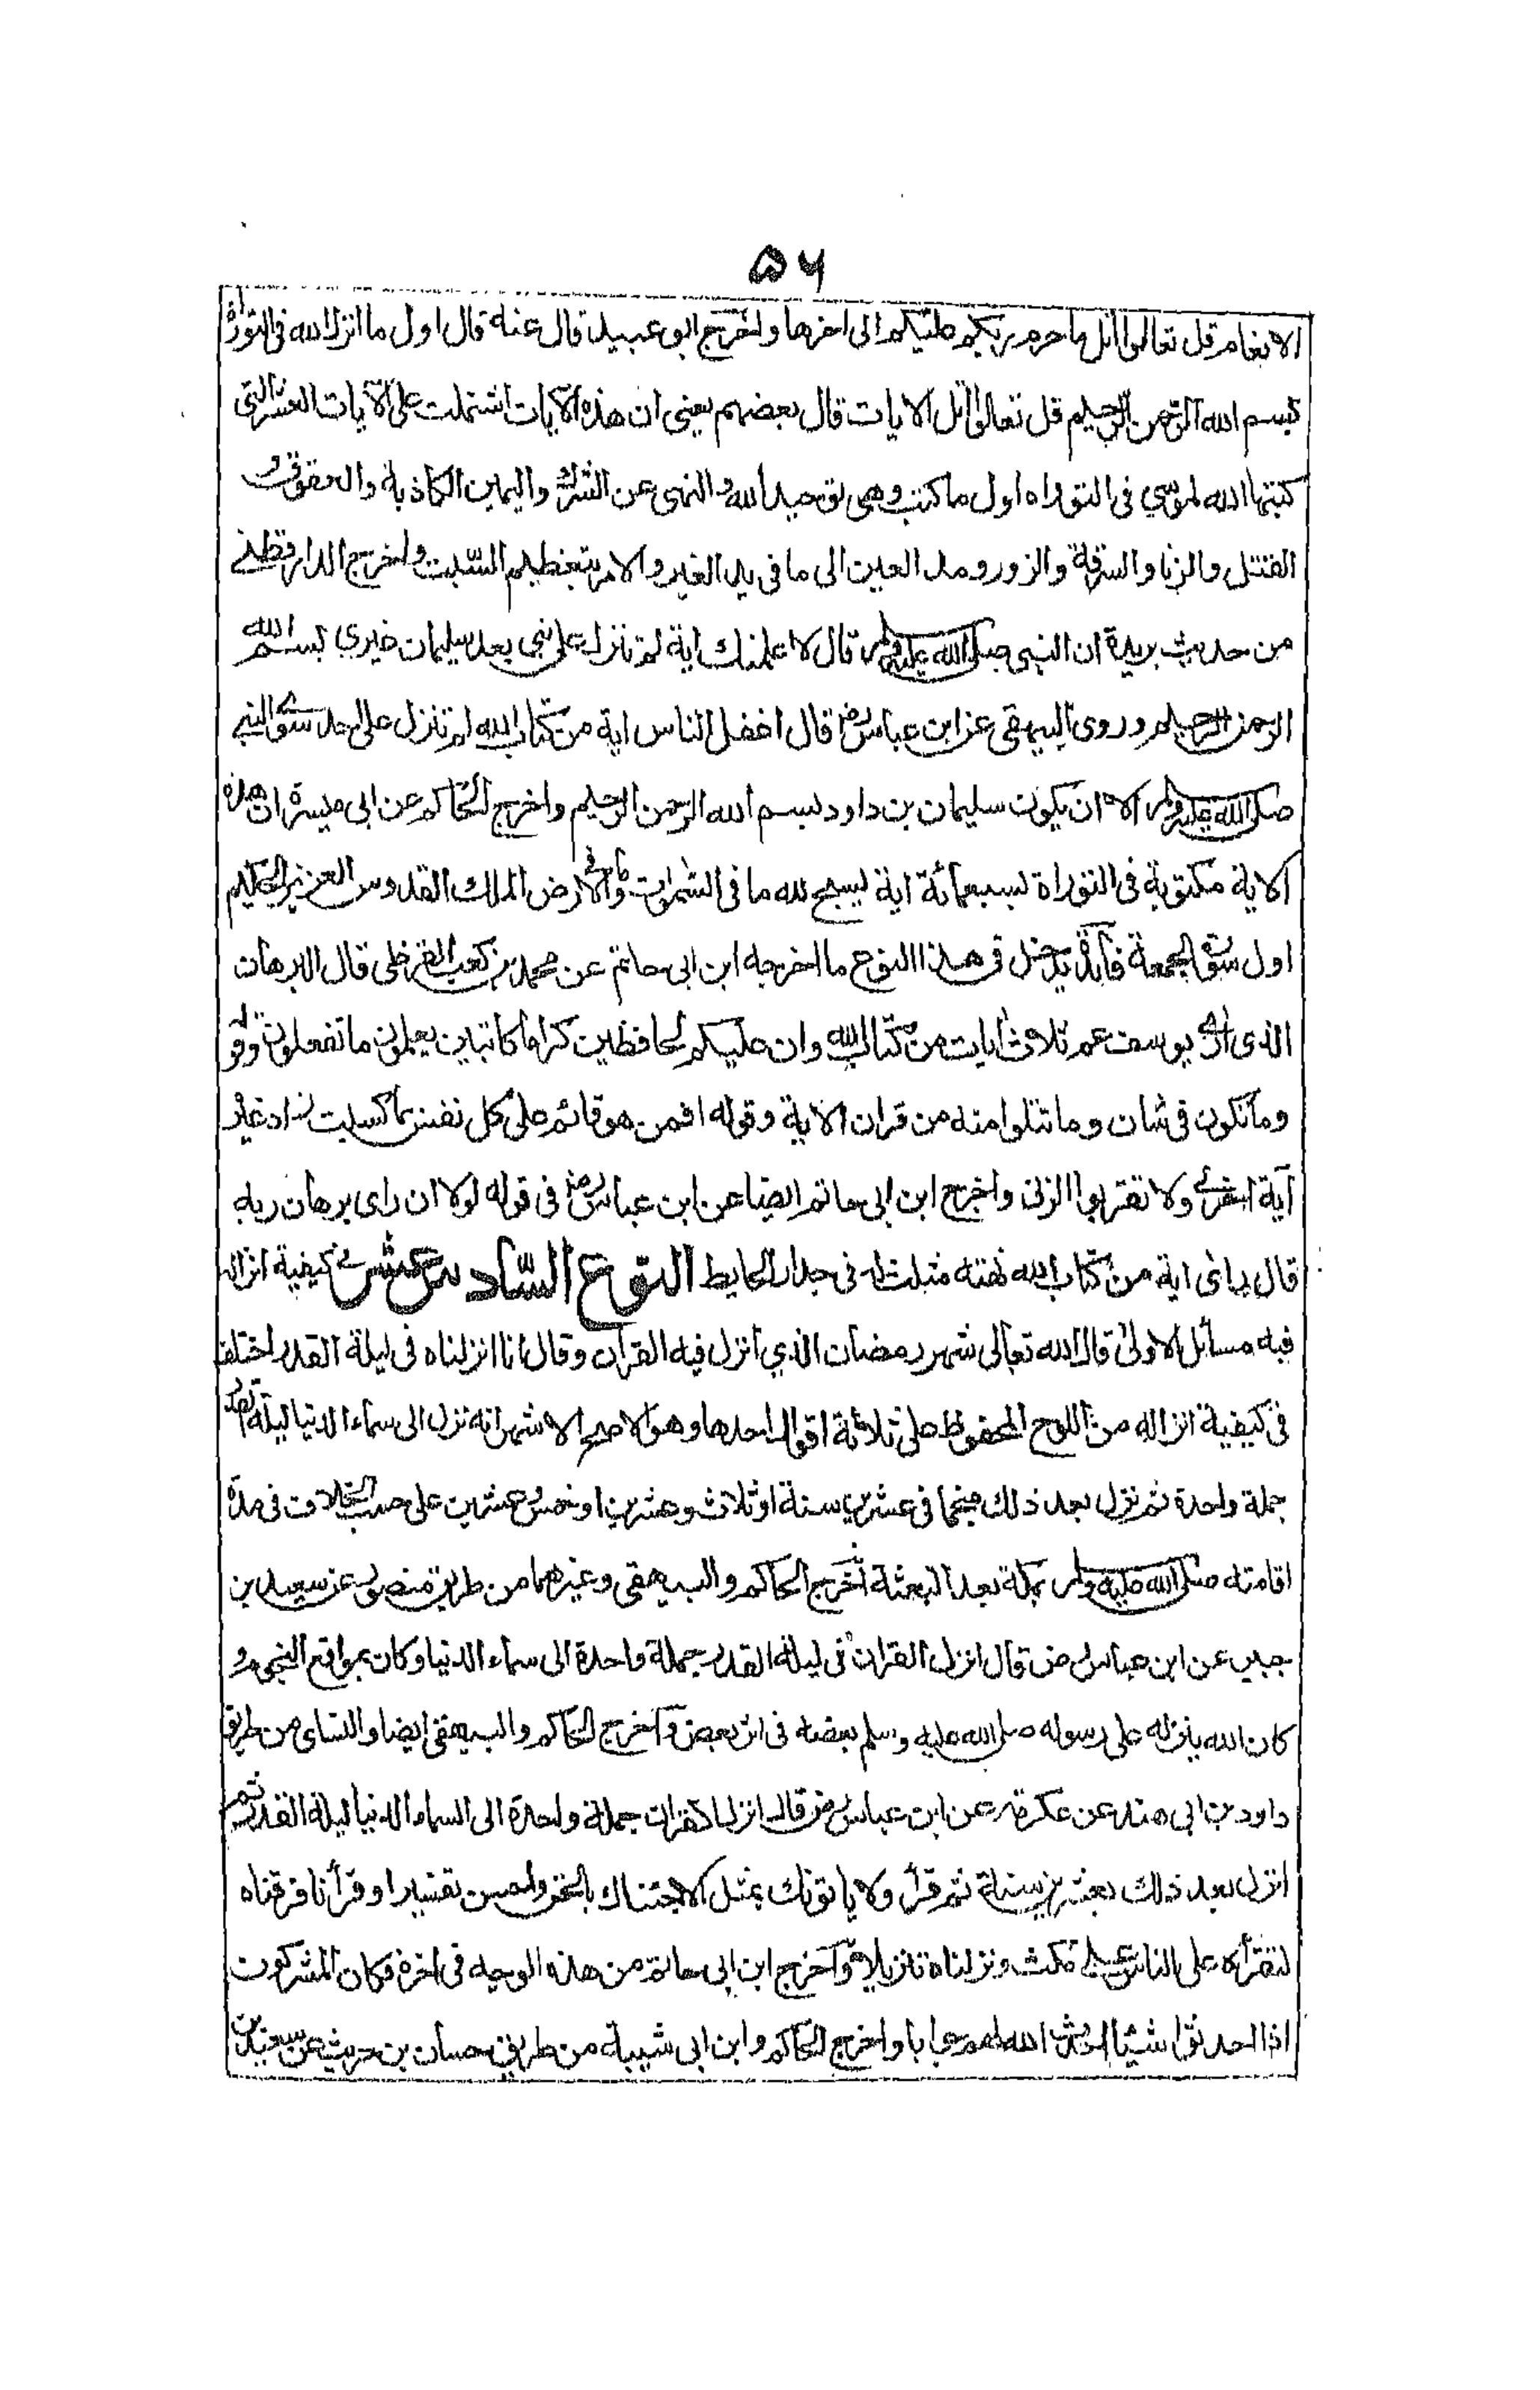 ۵۶
الانعام قل تعالوا اتل ما حرم ربكم عليكم الى اخرها واخرج ابو عبيد قال عنه قال اول ما انزل الله فى التوراة
بسم الله الرحمن الرحيم قل تعالوا اتل الايات قال بعضهم يعنى ان هذه الآيات اشتملت على الآيات العشر التى
كتبها الله لموسي فى التوراه اول ما كتب وهى توحيد الله والنهى عن الشرك واليمين الكاذبة والعقوق و
القتل والزنا والسرقة والزور ومد العين الى ما فى يد الغير والامر بتعظيم السبت واخرج الدارقطنے
من حديث بريدة ان النبى صلى الله عليه وسلم قال لاعلمنك اية لم تنزل على نبى بعد سليمان غيري بسم الله
الرحمن الرحيم وروى البيهقى عن ابن عباس رض قال اغفل الناس اية من كتاب الله لم تنزل على احد سوے النبے
صلى الله عليه وسلم الا ان يكون سليمان بن داود بسم الله الرحمن الرحيم واخرج الحاكم عن ابى ميسرة ان هذه
الاية مكتوبة فى التوراة بسبعمائة اية يسبح لله ما فى السموات وما فى الارض الملك القدوس العزيز الحكيم
اول سورة الجمعة فائدة يدخل فى هذا النوع ما اخرجه ابن ابى حاتم عن محمد بن كعب القرظى قال البرهان
الذى ارى يوسف عم ثلاث ايات من كتاب الله وان عليكم لحافظين كراما كاتبين يعلمون ما تفعلون وقوله
وما تكون فى شان وما تتلوا منه من قران الاية وقوله افمن هو قائم على كل نفس بما كسبت زاد غيره
آية اخرے ولا تقربوا الزنى واخرج ابن ابى حاتم ايضا عن ابن عباس رض فى قوله لولا ان راى برهان ربه
قال راى اية من كتاب الله نهته مثلت له فى جدار الحايط النوع السّادس عشر فے كيفية انزاله
فيه مسائل الاولى قال الله تعالى شهر رمضان الذي انزل فيه القرآن وقال انا انزلناه فى ليلة القدر اختلف
فى كيفية انزاله من اللوح المحفوظ على ثلاثة اقوال احدها وهو الاصح الاشهر انه نزل الى سماء الدنيا ليلة القدر
جملة واحدة ثم نزل بعد ذلك منجما فى عشرين سنة او ثلاث وعشرين او خمس وعشرين على حسب الخلاف فى مدة
اقامته صلى الله عليه وسلم بمكة بعد البعثة اخرج الحاكم والبيهقى وغيرهما من طريق منصور عن سعيد بن
جبير عن ابن عباس رض قال انزل القران فى ليلة القدر جملة واحدة الى سماء الدنيا وكان بمواقع النجوم و
كان الله ينزله على رسوله صلى الله عليه وسلم بعضه فى اثر بعض واخرج الحاكم والبيهقى ايضا والنساى من طريق
داود بن ابى هند عن عكرمة عن ابن عباس رض قال انزل القران جملة واحدة الى السماء الدنيا ليلة القدر ثم
انزل بعد ذلك بعشرين سنة ثم قرأ ولا ياتونك بمثل الا جئناك بالحق واحسن تفسيرا وقرأنا فرقناه
لتقرأه على الناس على مكث ونزلناه تنزيلا واخرج ابن ابى حاتم من هذه الوجه فى اخره فكان المشركون
اذا احدثوا شيئا احدث الله لهم جوابا واخرج الحاكم وابن ابى شيبة من طريق حسان بن حريث عن سعيد بن